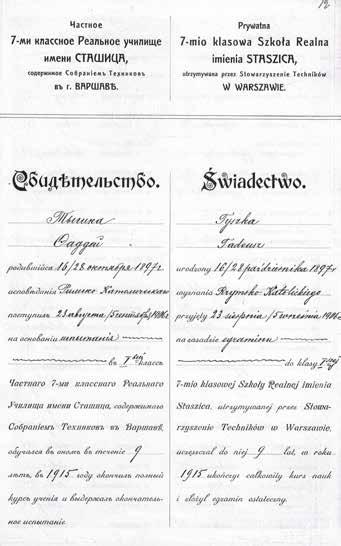 12
Частное
7-ми классное Реальное училище
имени СТАШИЦА,
содержимое Собраніемъ Техниковъ
въ г. ВАРШАВѢ.
Свидѣтельство.
Тычка
Фаддей
родившійся 16/28 октября 1897 г.
исповѣданія Римско Католическаго
поступилъ 23 августа / 5 сентября 1906 г.
на основаніи испытанія
въ классъ
Частнаго 7-ми класснаго Реальнаго
Училища имени Сташица, содержимаго
Собраніемъ Техниковъ въ Варшавѣ,
обучался въ ономъ въ теченіе 9
лѣтъ, въ 1915 году окончилъ полный
курсъ ученія и выдержалъ окончатель-
ное испытаніе.
Prywatna
7-mio klasowa Szkoła Realna
imienia STASZICA,
utrzymywana przez Stowarzyszenie Techników
W WARSZAWIE.
Świadectwo.
Tyczka
Tadeusz
urodzony 16/28 października 1897 r
wyznania Rzymsko Katolickiego
przyjęty 23 sierpnia / 5 września 1906 r.
na zasadzie egzaminu
do klasy
7-mio klasowej Szkoły Realnej imienia
Staszica, utrzymywanej przez Stowa-
rzyszenie Techników w Warszawie,
uczęszczał do niej 9 lat, w roku
1915 ukończył całkowity kurs nauk
i złożył egzamin ostateczny.